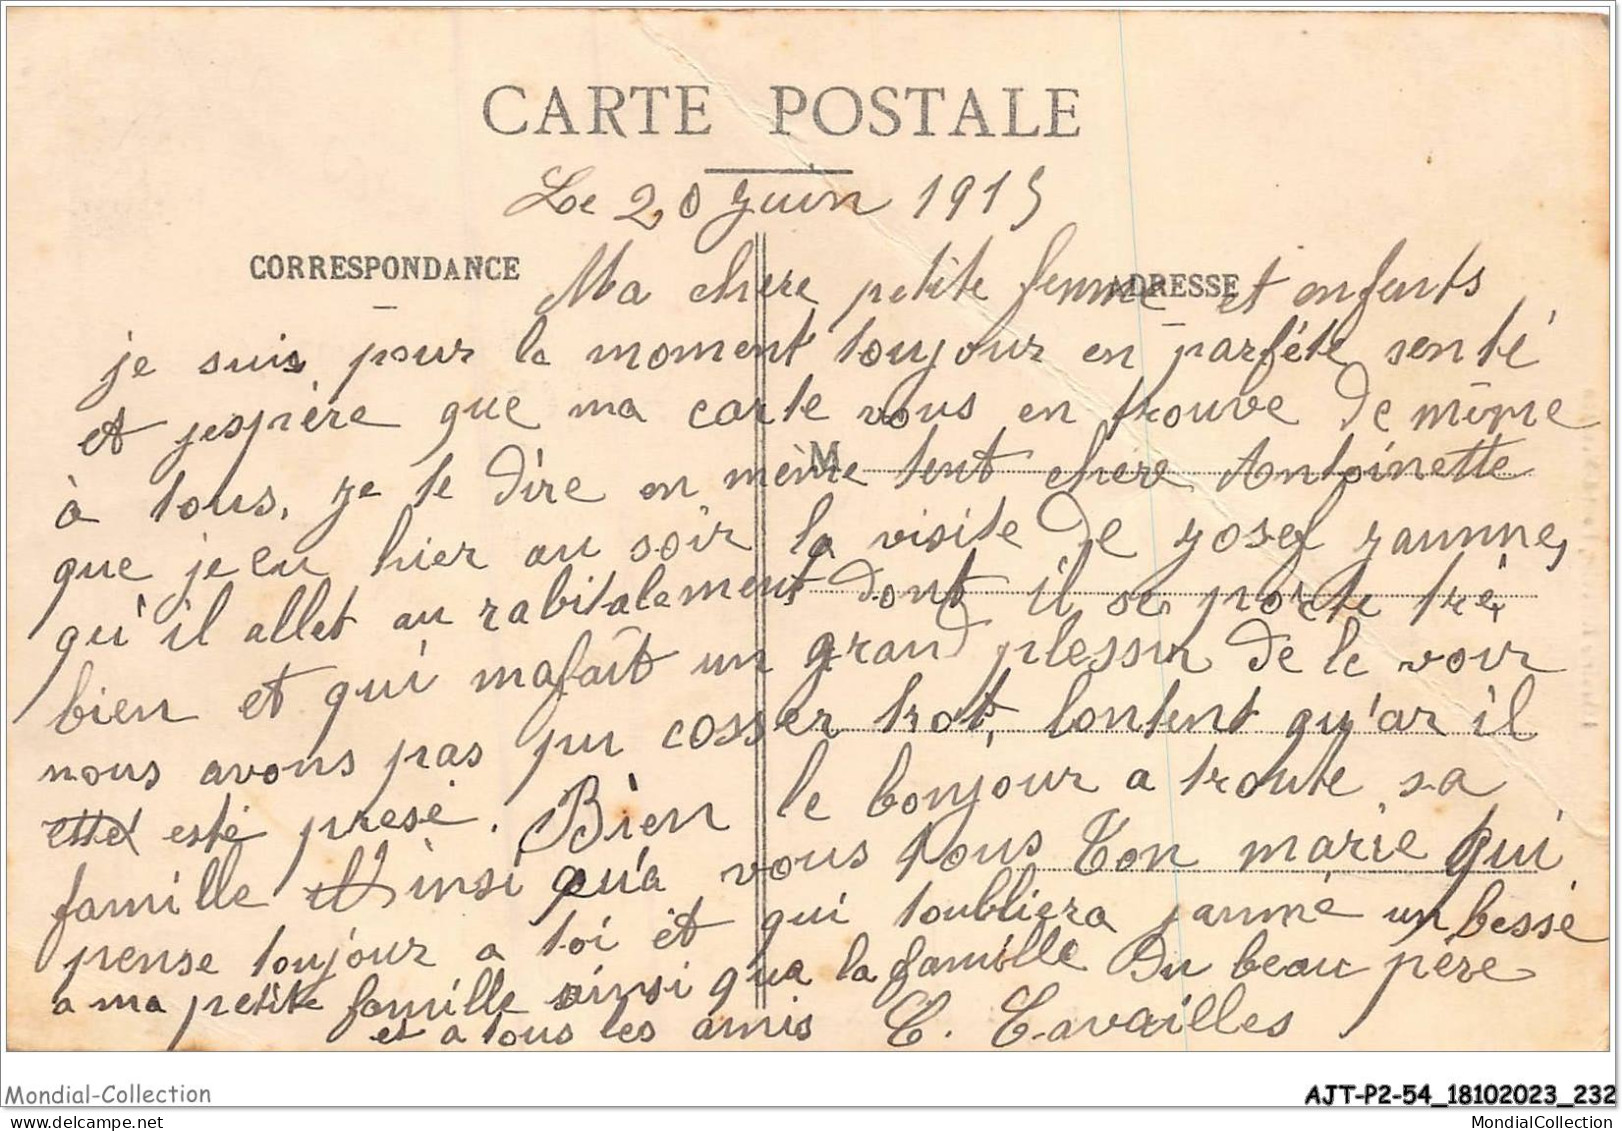 CARTE POSTALE
Le 20 juin 1915
CORRESPONDANCE
ADRESSE
Ma chere petite femme et enfants
je suis pour le moment toujour en parféte senté
et jespère que ma carte vous en trouve de même
à tous. je te dire en même tent chere Antoinette
M
que je eu hier au soir la visite de Josef Jaumme,
qu'il allet au rabitalement dont il se porte trè
bien et qui mafait un grand plessir de le voir
nous avons pas pu cosser trot, content qu'ar il
esté presé. Bien le bonjour a troute sa
famille Ainsi qu'a vous tous Ton marie qui
pense toujour a toi et qui toubliera jamné un bessé
a ma petite famille ainsi qua la famille Du beau pere
et a tous les amis C. Cavailles
Mondial-Collection
AJT-P2-54_18102023_232
MondialCollection